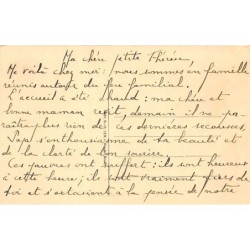 Ma chère petite Thérèse,
Me voilà chez moi : nous sommes en famille
réunis autour du feu familial.
L'accueil a été chaud : ma chère et
bonne maman revit, demain il ne pa-
raîtra plus rien de ces dernières secousses.
Papa s'enthousiasme de ta beauté et
de la clarté de ton sourire
Ces pauvres ont souffert : ils sont heureux
à cette heure ; ils sont vraiment fiers de
toi et s'extasient à la pensée de notre